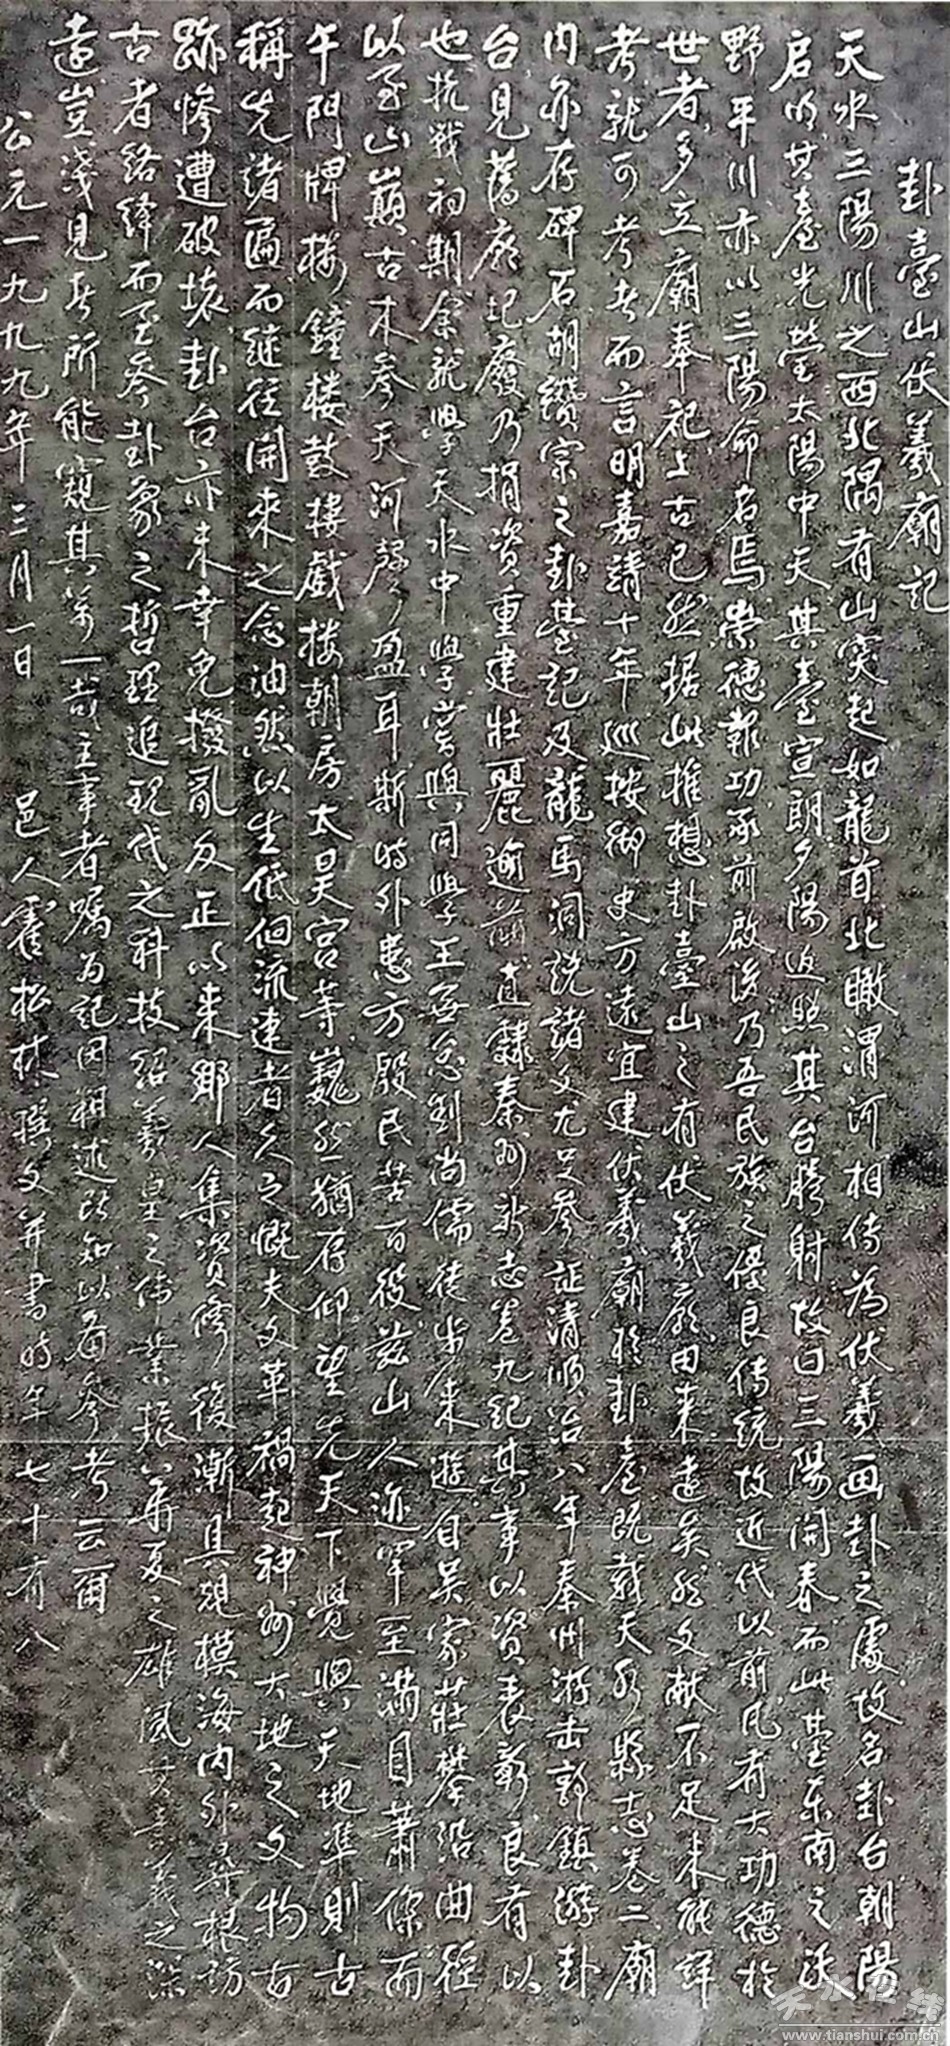 卦臺山伏羲廟記
天水三陽川之西北隅有山突起如龍首北瞰渭河相傳為伏羲画卦之處故名卦台朝陽
启明其臺光瑩太陽中天其臺宣朗夕陽返照其台騰射故曰三陽開春而此臺东南之沃
野平川亦以三陽命名焉崇德報功承前啟後乃吾民族之優良傳統故近代以前凡有大功德於
世者多立廟奉祀上古已然据此推想卦臺山之有伏羲廟由来遠矣然文献不足未能詳
考就可考者而言明嘉靖十年巡按御史方远宜建伏羲廟於卦臺既載天水縣志卷二廟
内亦存碑石胡纘宗之卦臺記及龍馬洞說諸文尤足參証清順治八年秦州游击郭鎮游卦
台見舊廟圮廢乃捐資重建壯麗逾前直隸秦州新志卷九紀其事以資表彰良有以
也抗戰初期余就學天水中學嘗與同學王無怠劉尚儒徒步来遊自吴家莊攀沿曲徑
以至山巔古木參天河聲盈耳斯時外患方殷民苦百役兹山人迹罕至滿目蕭條而
午門牌樓鐘楼鼓樓戲楼朝房太昊宫等巍然猶存仰望先天下覺與天地準則古
稱先諸匾而継往開来之念油然以生低佪流連者久之慨夫文革禍起神州大地之文物古
跡慘遭破壞卦台亦未幸免撥亂反正以来鄉人集資修復漸具規模海内外尋根訪
古者絡繹而至參卦象之哲理追現代之科技紹羲皇之偉業振華夏之雄風其意義之深
遠豈淺見者所能窺其萬一哉主事者囑为記因粗述所知以备參考云爾
公元一九九九年三月一日 邑人霍松林撰文并書時年七十有八
天水在线
www.tianshui.com.cn